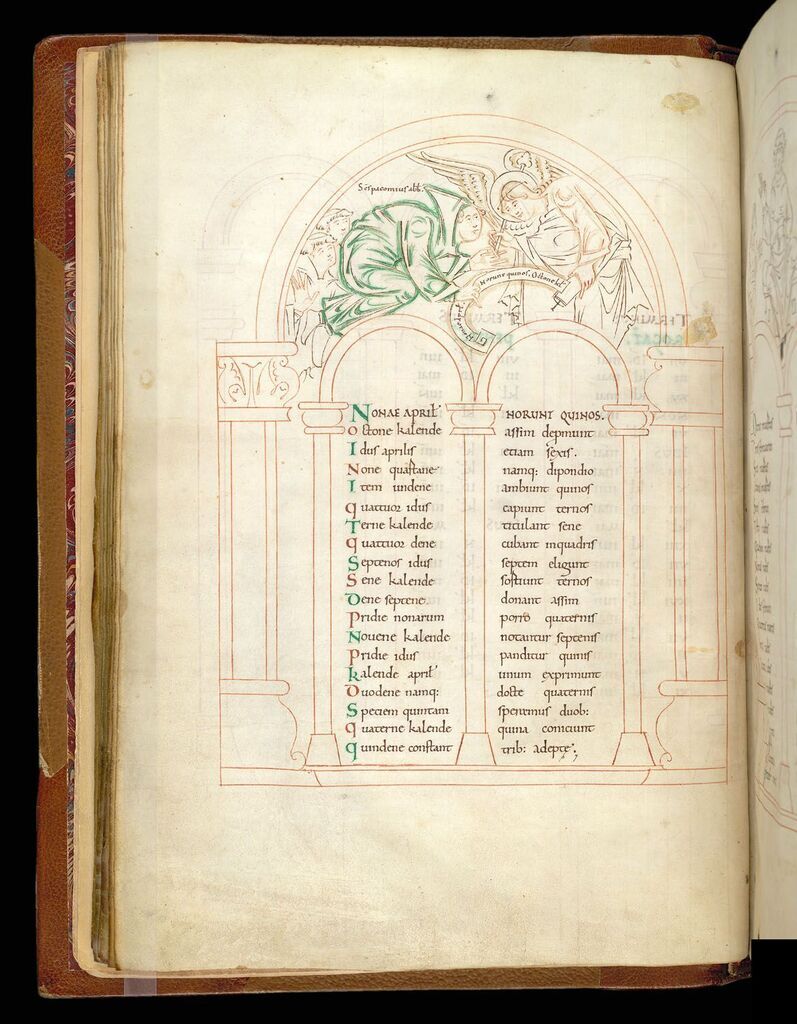 Scs pacomius abb.
Norunt quinos. Octone kl
Nonae aprl
NONAE APRIL NORUNT QUINOS.
octone kalende assim depmunt
Idus aprilis etiam sexis.
None quaʃtane namq: dipondio
Item undene ambiunt quinos
quattuor idus capiunt ternos
Terne kalende titulant sene
quattuor dene cubant inquadris
Septenos idus septem eligunt
Sene kalende sostiunt ternos
Dene septene donant assim
Pridie nonarum porro quaternis
Nouene kalende notantur septenis
Pridie idus panditur quinis
kalende april unum exprimunt
Duodene namq: docte quaternis
Speciem quintam speremus duob:
quaterne kalende quina coniciunt
quindene constant trib: adepte.